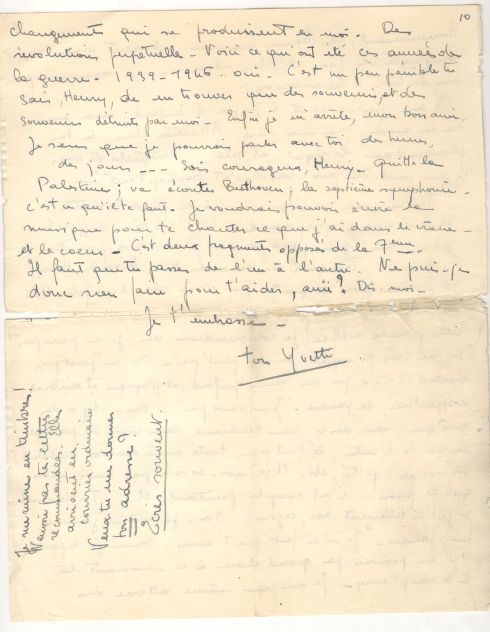 10
changements qui se produisent en moi. Des
révolutions perpétuelles - Voici ce qu'ont été ces années de
la guerre - 1939-1945 .. oui. C'est un peu pénible tu
sais, Henry, de ne trouver que des souvenirs, et des
souvenirs détruits par moi - Enfin je m'arrête, mon bon ami.
Je sens que je pourrais parler avec toi des heures,
des jours --- Sois courageux, Henry - quitte la
Palestine ; va écouter Beethoven ; la septième symphonie -
c'est ce qu'il te faut. Je voudrais pouvoir écrire la
musique pour te chanter ce que j'ai dans le crâne -
et le coeur - C'est deux fragments opposés de la 7ème.
Il faut que tu passes de l'un à l'autre. Ne puis-je
donc rien faire pour t'aider, ami ? Dis-moi -
Je t'embrasse -
ton Yvette
Je me ruine en timbres !
N'envoie pas tes lettres
recommandées. Elles
arrivent en
courrier ordinaire
Veux-tu me donner
ton adresse ?
Ecris souvent.